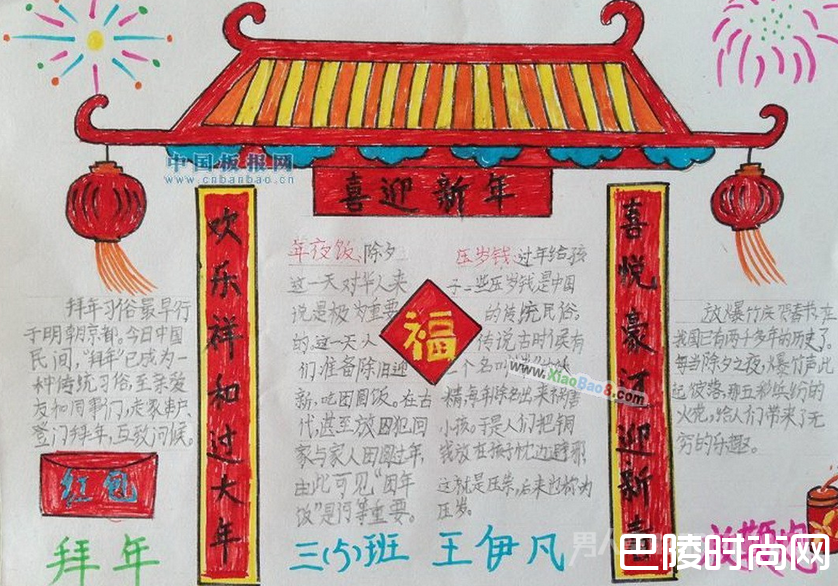 中国板报网
www.cnbanbao.cn
喜迎新年
欢乐祥和过大年
拜年习俗最早行
于明朝京都。今日中国
民间,"拜年"已成为一
种传统习俗,至亲爱
友如同事们,走家串户,
登门拜年,互致问候。
红包
拜年
年夜饭:除夕
这一天对华人来
说是极为重要
的,这一天人
们准备除旧迎
新,吃团圆饭。在古
代,甚至放囚犯回
家与家人团圆过年,
由此可见"团年
饭"是何等重要。
福
压岁钱:过年给孩
子一些压岁钱是中国
的传统民俗,
传说古时候有
一个名叫
精,每年除夕出来祸害
小孩。于是人们把铜
钱放在孩子枕边避邪,
这就是压祟,后来也称为
压岁。
www.XiaoBao8.com
喜悦豪迎新春
放爆竹庆贺春节,在
我国已有两千多年的历史了。
每当除夕之夜,爆竹声此
起彼落,那五彩缤纷的
火花,给人们带来了无
穷的乐趣。
三(5)班 王伊凡
男人
巴陵时尚网